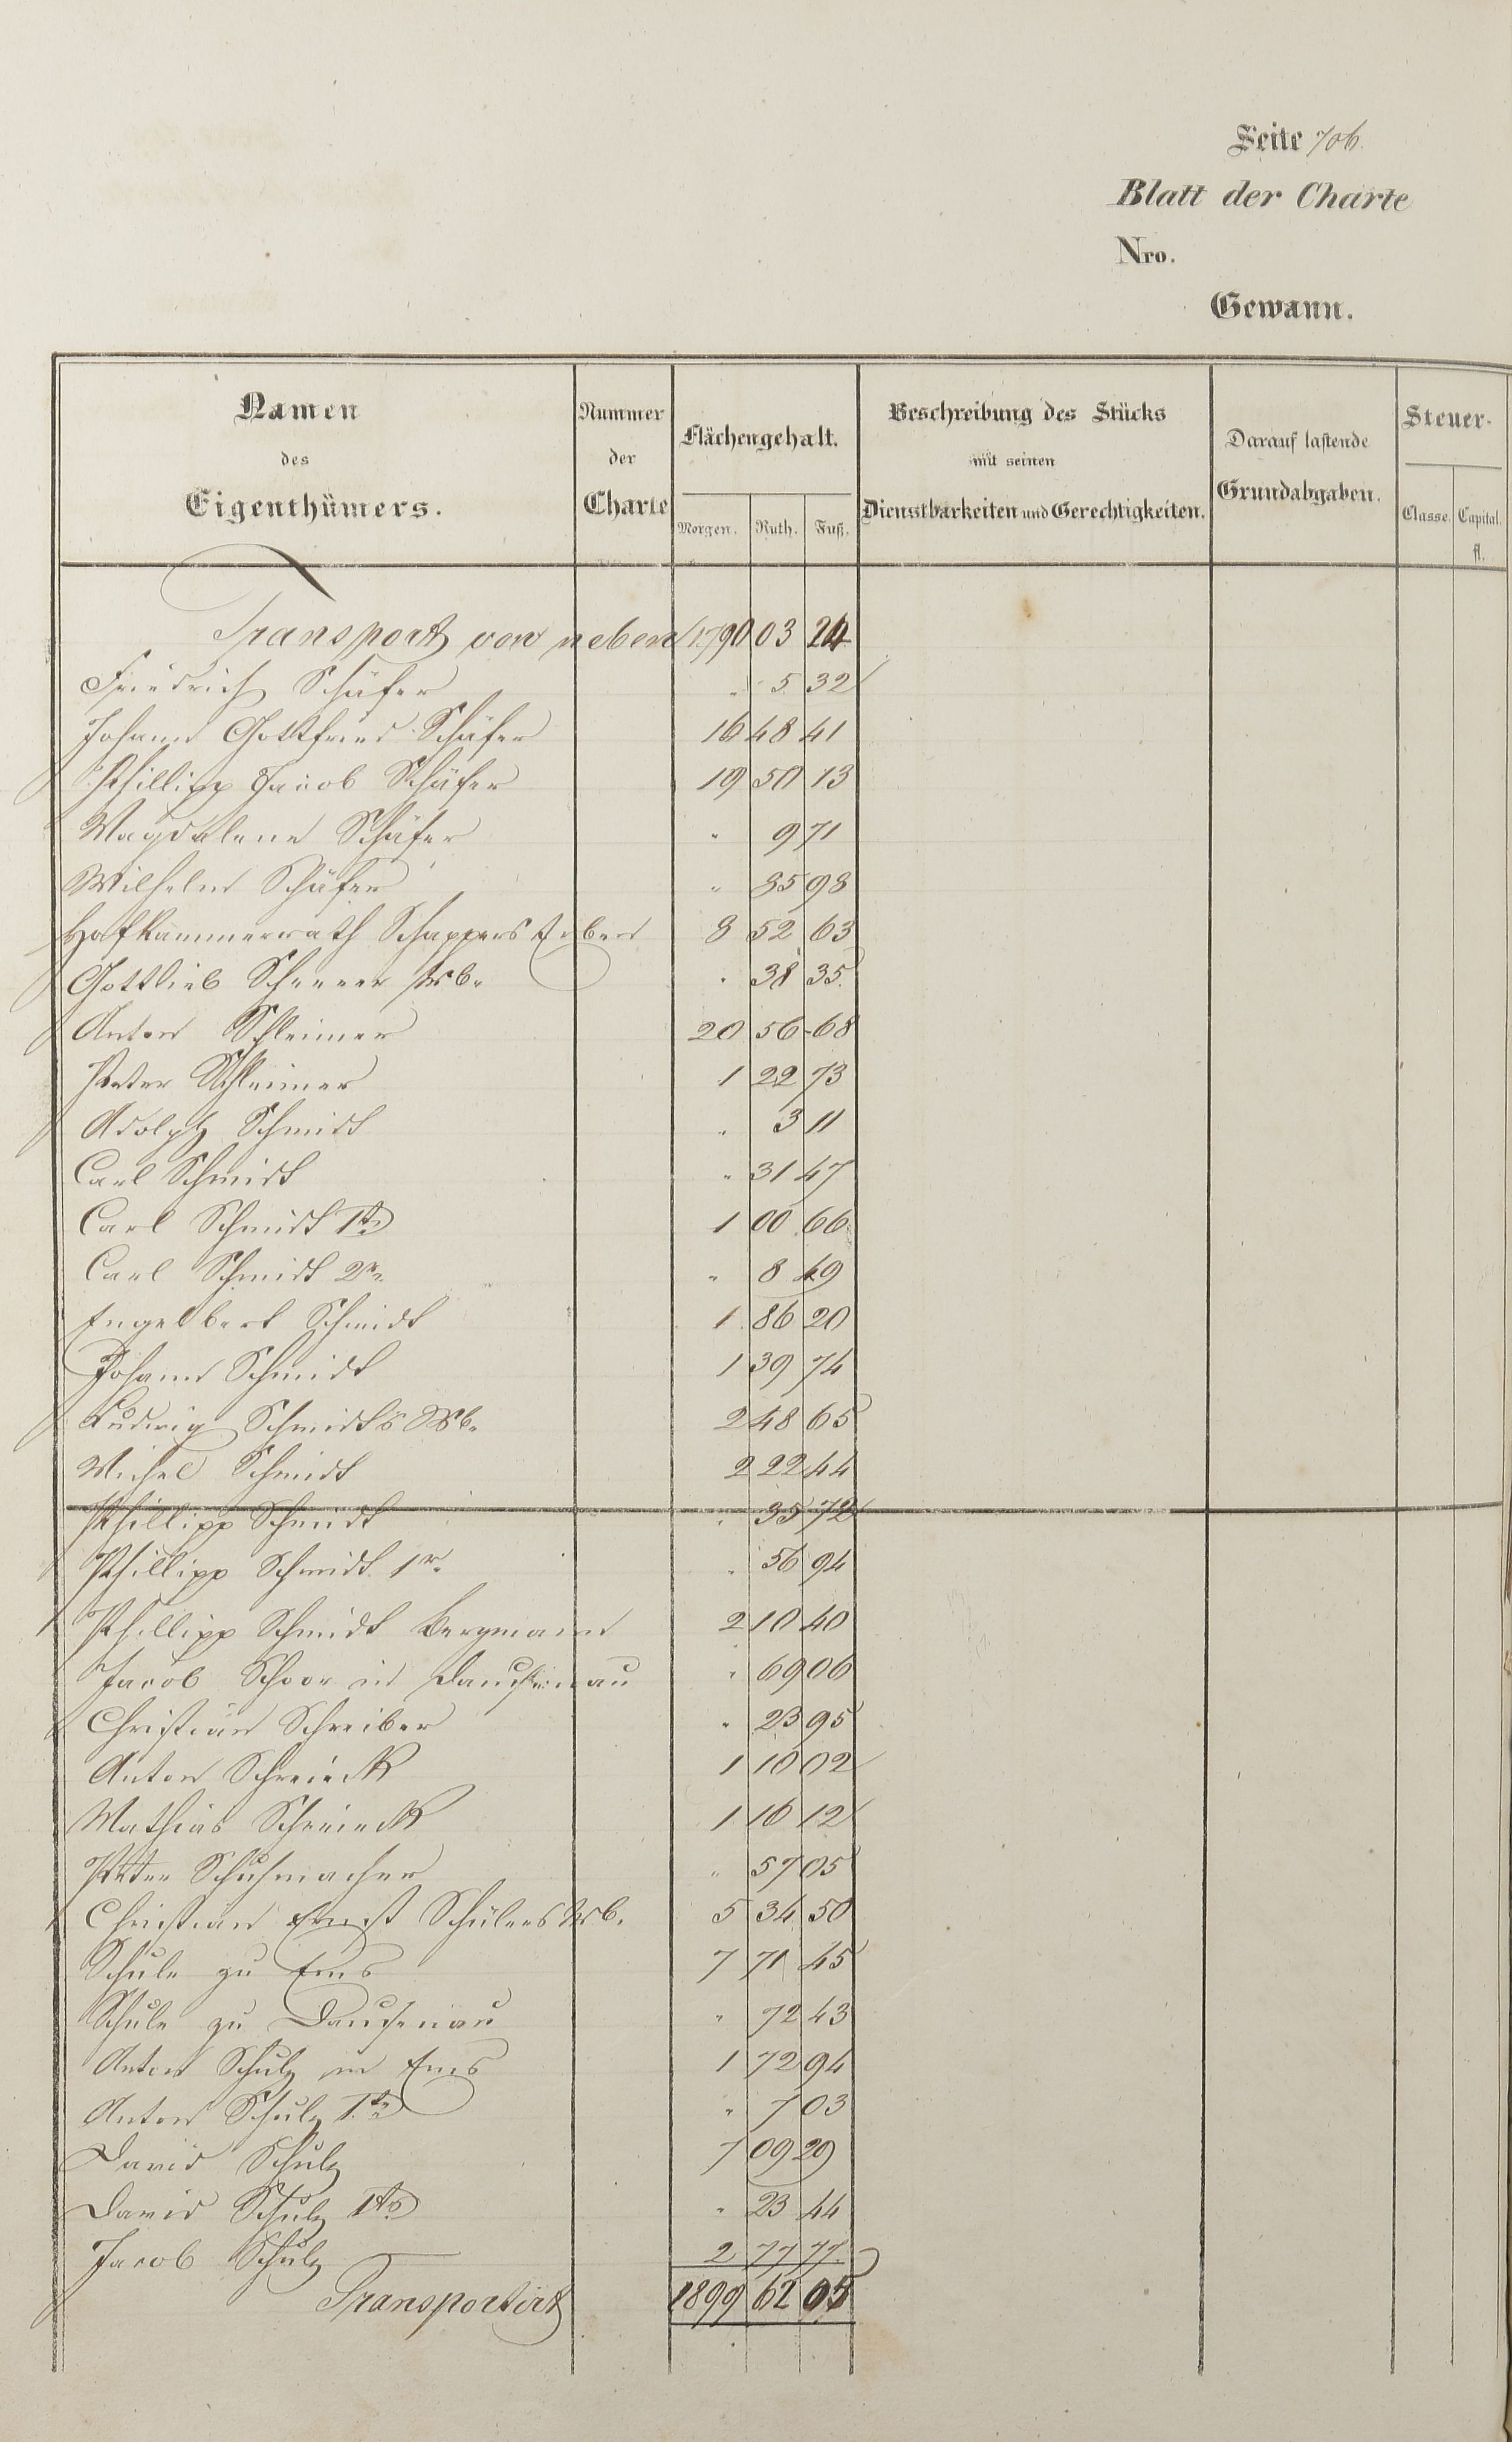 Seite 706.
Blatt der Charte
Nro.
Gewann.
Namen des Eigenthümers. Nummer der Charte Flächengehalt. Morgen. Ruth. Fuß. Beschreibung des Stücks mit seinen Dienstbarkeiten und Gerechtigkeiten. Darauf lastende Grundabgaben. Steuer- Classe. Capital. fl.
Transport von neben 1790 03 24
Friedrich Schäfer " 5 32
Johann Gottfried Schäfer 16 48 41
Phillipp Jacob Schäfer 19 50 13
Magdalene Schäfer " 9 71
Wilhelm Schäfer " 85 98
Hofkammerrath Schappers Erben 8 52 63
Gottlieb Scheuer Wb. " 38 35
Anton Schleimer 20 56 68
Peter Schleimer 1 22 73
Adolph Schmidt " 3 11
Carl Schmidt " 31 47
Carl Schmidt 1te 1 00 66
Carl Schmidt 2r " 8 49
Engelbert Schmidt 1 86 20
Johann Schmidt 1 39 74
Ludwig Schmidt's Wb. 2 48 65
Michel Schmidt 2 22 44
Phillipp Schmidt " 35 72
Phillipp Schmidt 1r. " 56 94
Phillipp Schmidt Bergmann 2 10 40
Jacob Schoor in Dausenau " 69 06
Christian Schreiber " 23 95
Anton Schreieck 1 10 02
Mathias Schreieck 1 16 12
Peter Schuhmacher " 57 05
Christian Ernst Schülers Wb. 5 34 50
Schule zu Ems 7 71 45
Schule zu Dausenau " 72 43
Anton Schulz in Ems 1 72 94
Anton Schulz 1te " 7 03
David Schulz 7 09 29
David Schulz 1te " 23 44
Jacob Schulz 2 77 77
Transportirt 1899 62 05